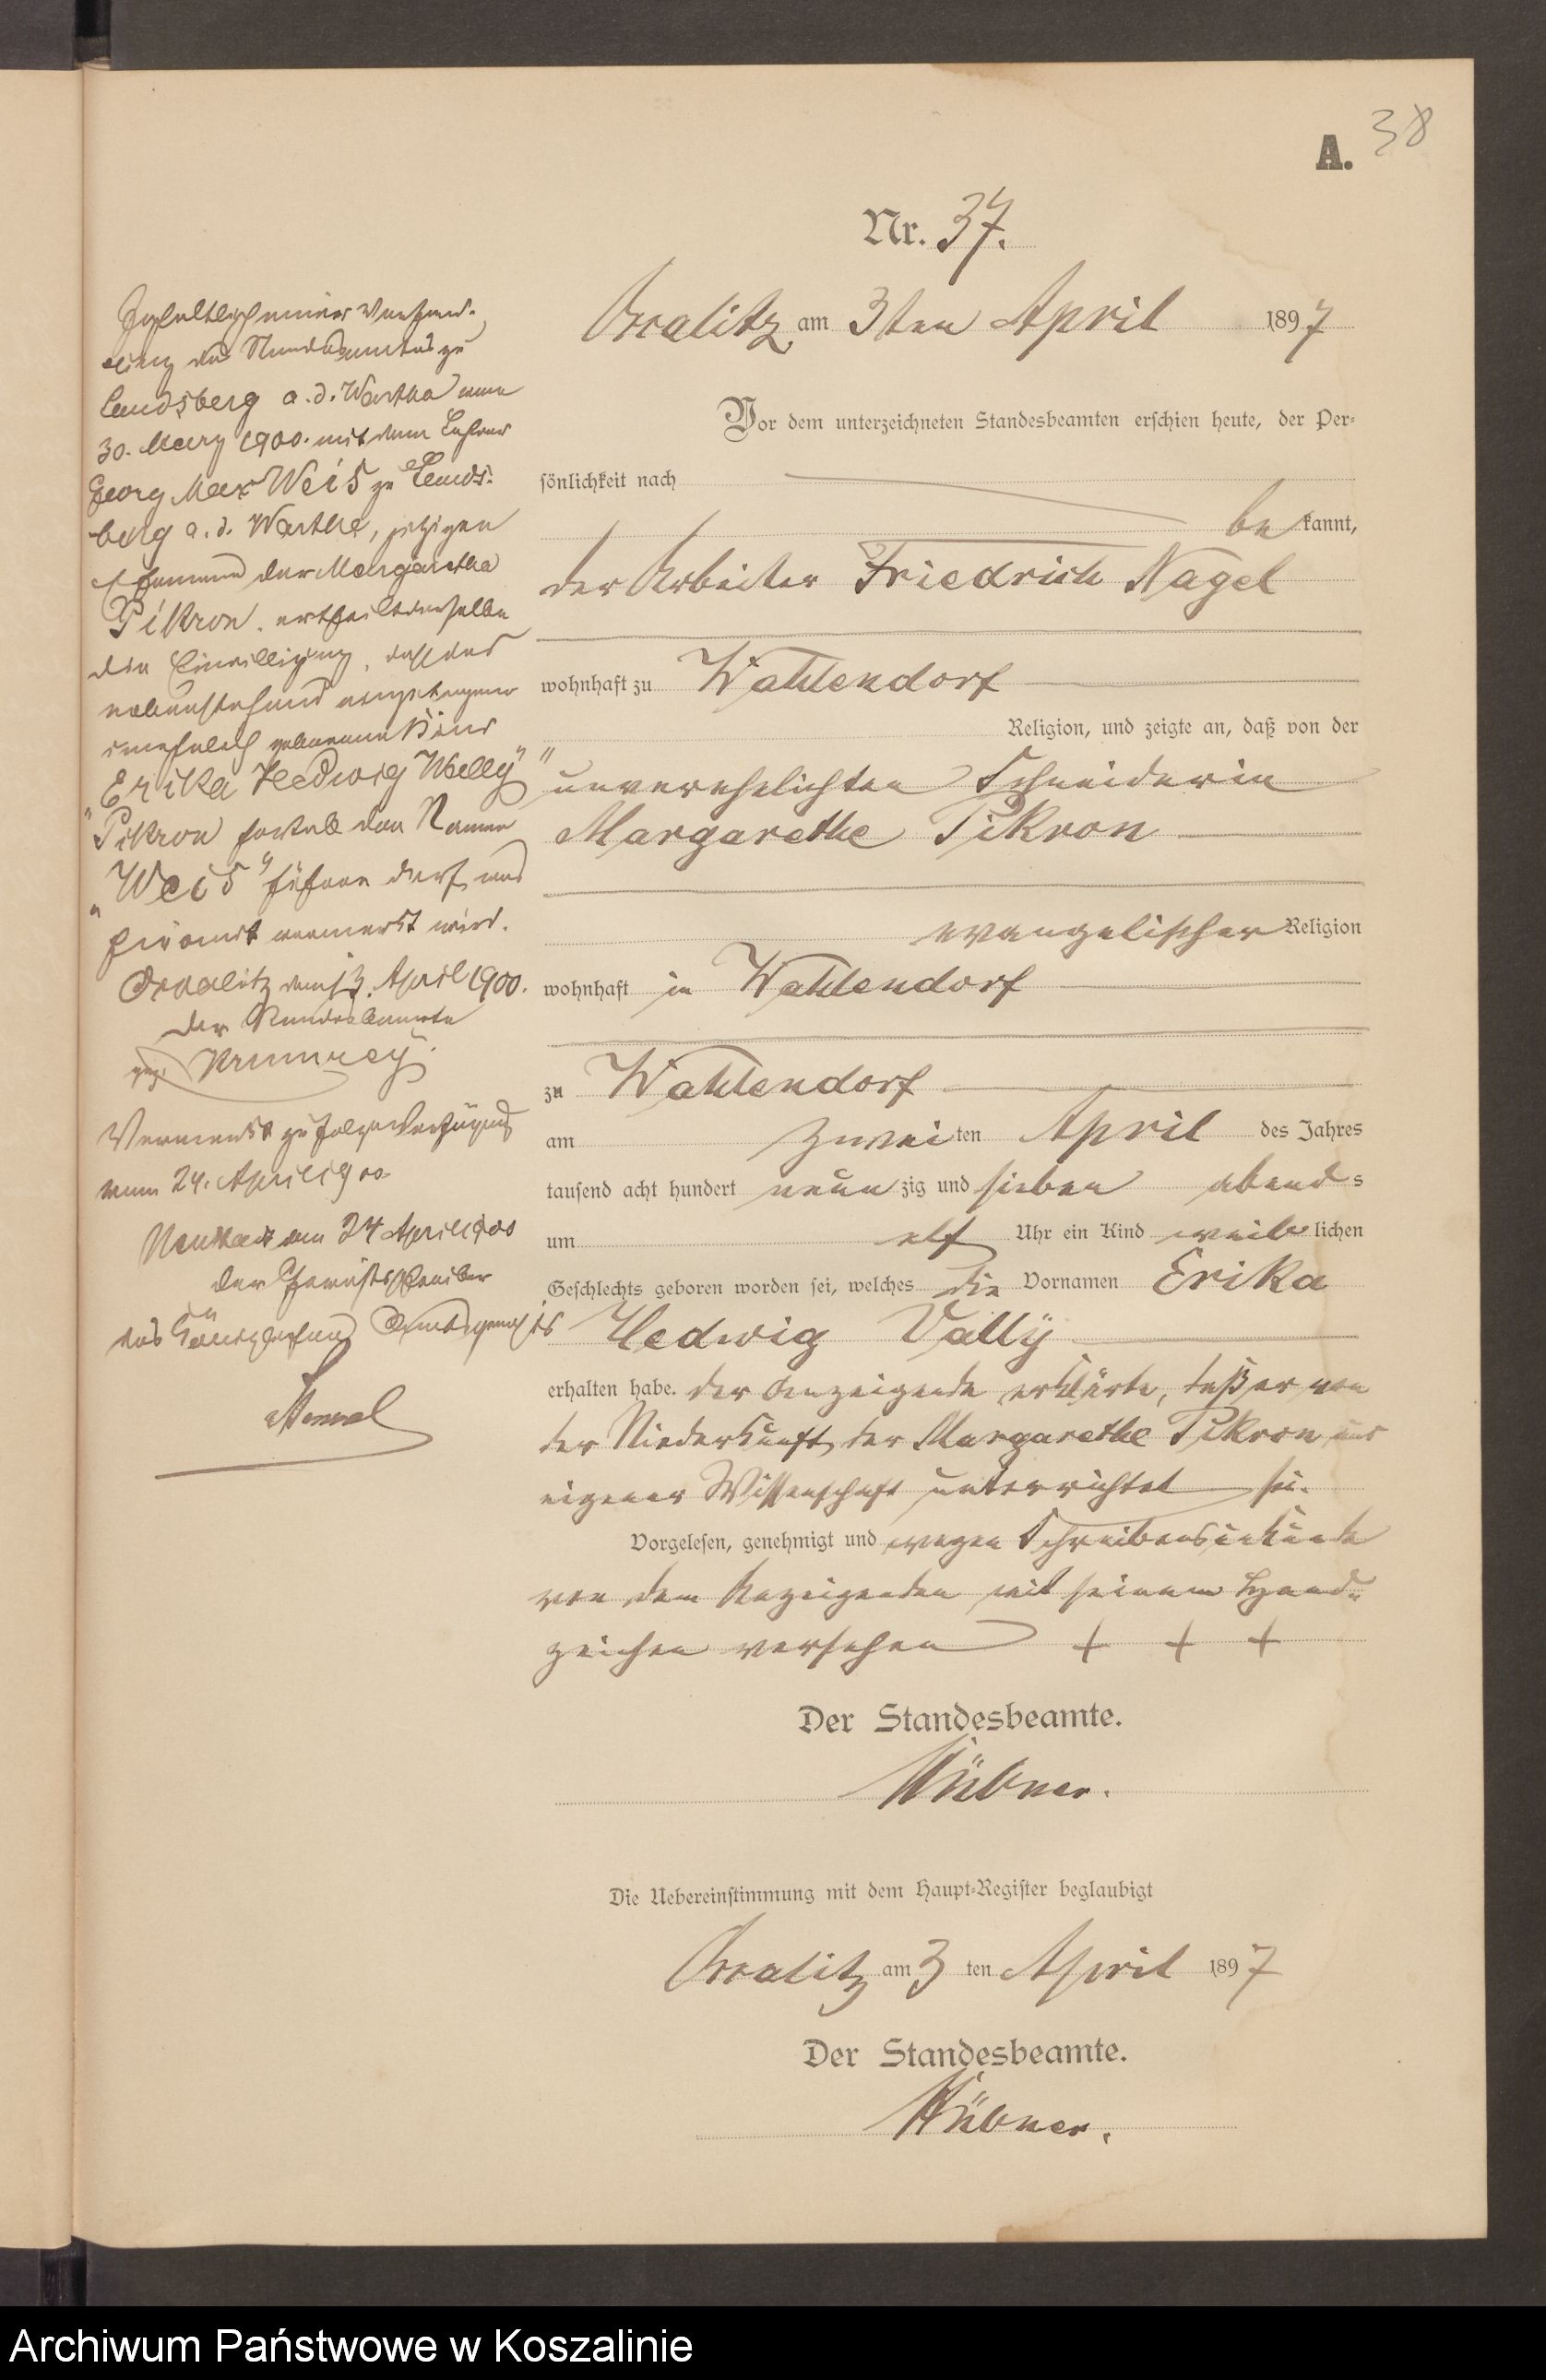 A. 38
Nr. 37.
am 3ten April 1897
Vor dem unterzeichneten Standesbeamten erschien heute, der Per-
sönlichkeit nach
bekannt,
der Arbeiter Friedrich Nagel
wohnhaft zu Wahlendorf
Religion, und zeigte an, daß von der
unverehelichten Schneiderin
Margarethe Pikron
evangelischer Religion
wohnhaft in Wahlendorf
zu Wahlendorf
am zweiten April des Jahres
tausend acht hundert neunzig und sieben abends
um elf Uhr ein Kind weiblichen
Geschlechts geboren worden sei, welches die Vornamen Erika
Hedwig Vally
erhalten habe. Der Anzeigende erklärte, daß er von
der Niederkunft der Margarethe Pikron aus
eigener Wissenschaft unterrichtet sei.
Vorgelesen, genehmigt und wegen Schreibensunkunde
von dem Anzeigenden mit seinem Hand-
zeichen versehen + + +
Der Standesbeamte.
Hübner.
Die Uebereinstimmung mit dem Haupt-Register beglaubigt
am 3ten April 1897
Der Standesbeamte.
Hübner.
des Standesamtes zu
Landsberg a. d. Wartha vom
30. März 1900. mit dem Lehrer
Georg Max Weis zu Lands-
berg a. d. Warthe, jetzigen
Ehemann der Margarethe
Pikron, ertheilt derselbe
die Einwilligung, daß das
nebenstehend eingetragene
unehelich geborene Kind
"Erika Hedwig Wally"
"Pikron" fortab den Namen
"Weis" führen darf, was
hierdurch vermerkt wird.
den 13. April 1900.
Der Standesbeamte
gez. Krumrey.
Vermerkt zufolge Verfügung
vom 24. April 1900
am 24 April 1900
Der Gerichtsschreiber
des Königlichen Amtsgerichts
Archiwum Państwowe w Koszalinie